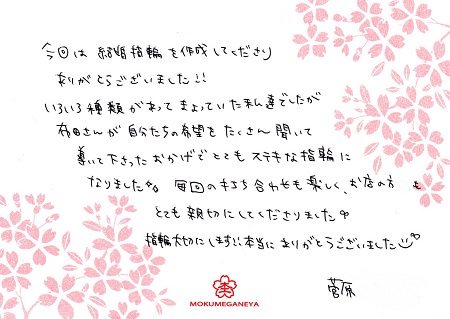 今回は結婚指輪を作成してくださり
ありがとうございました!!
いろいろ種類があって まよっていた私達でしたが
布田さんが自分たちの希望をたくさん聞いて
導いて下さったおかげでとてもステキな指輪に
なりました。毎回の打ち合わせも楽しく、お店の方も
とても親切にしてくださりました
指輪大切にします!!本当にありがとうございました
菅原
MOKUMEGANEYA